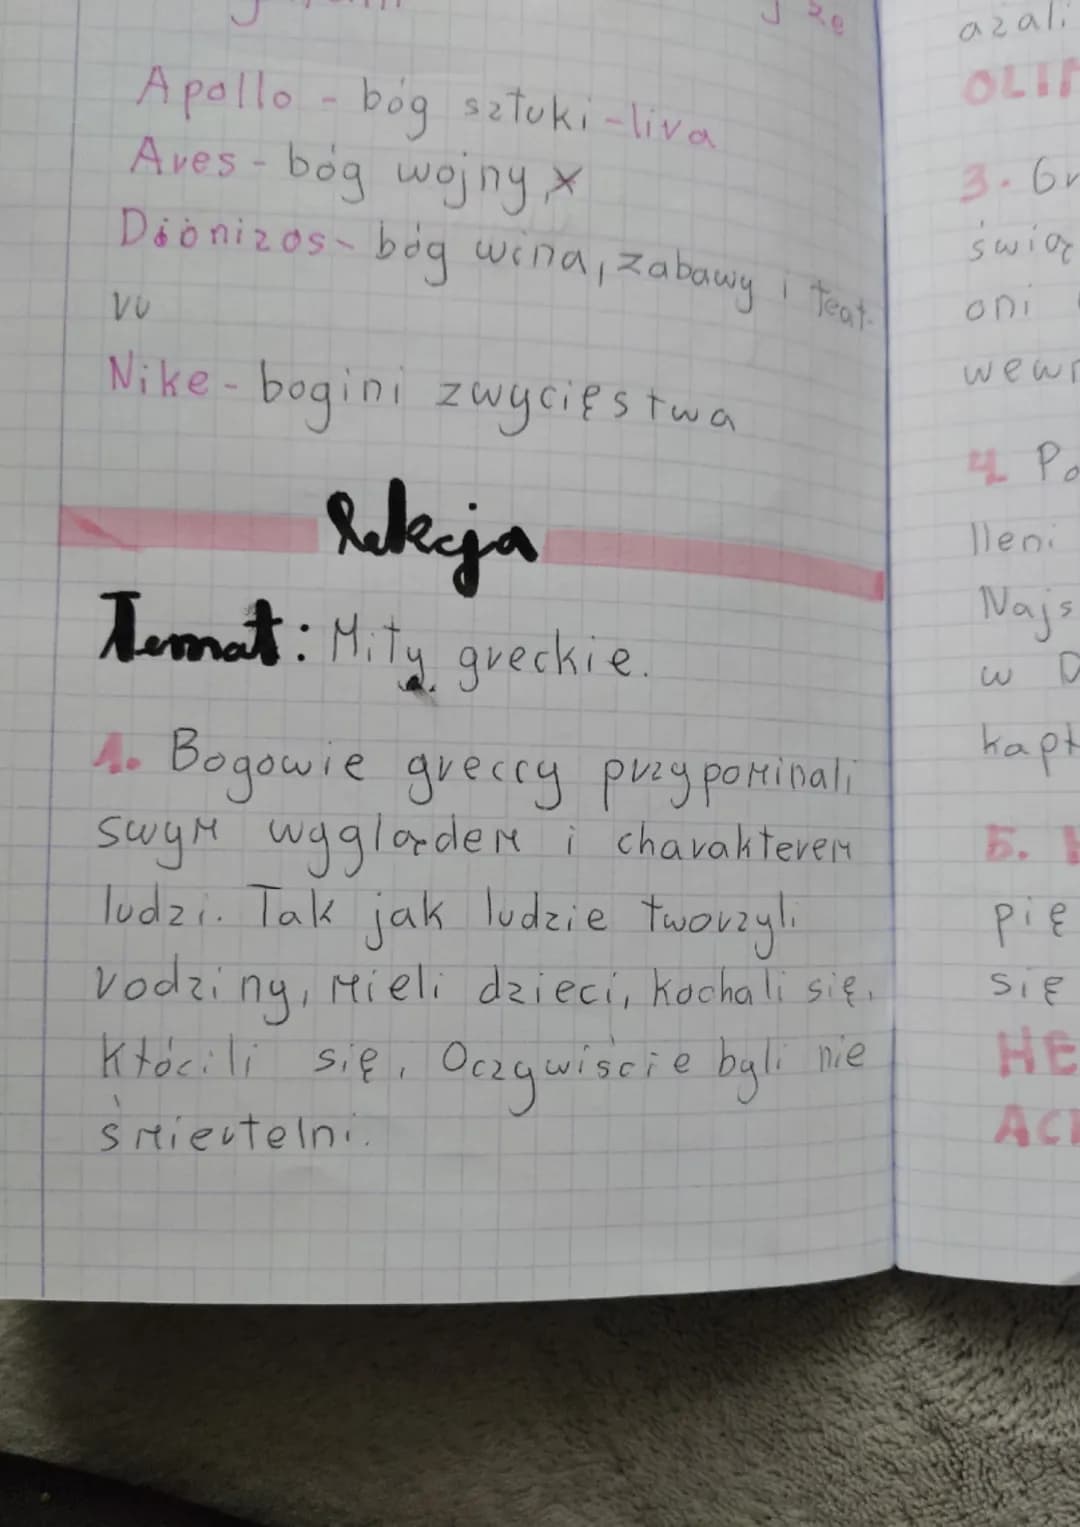 Apollo - bóg sztuki - lira
Ares - bóg wojny, x
Dionizos - bóg wina, zabawy i teat-
ru
Nike - bogini zwycięstwa
Lekcja
Temat: Mity greckie.
1. Bogowie greccy przypominali
swym wyglądem i charakterem
ludzi. Tak jak ludzie tworzyli
rodziny, mieli dzieci, kochali się,
kłócili się, Oczywiście byli nie
śmiertelni.
azali
OLIM
3. Gr
świą
oni
wewn
4. Po
lleni
Najs
w D
kapł
5.
pię
się
HE
ACH